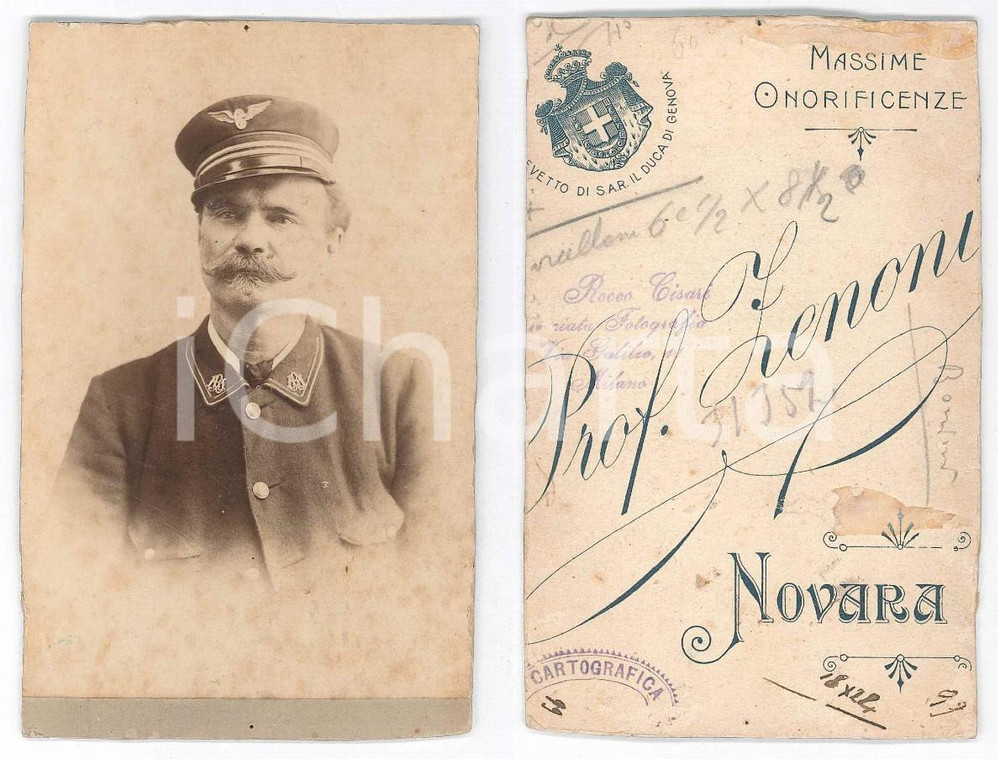 iCharta
MASSIME
ONORIFICENZE
EVETTO DI S.A.R. IL DUCA DI GENOVA
6 e 1/2 X 8 1/2
Rocco Cisari
Fotografia
Via Galileo, 11
Milano
Prof. Zenoni
NOVARA
CARTOGRAFICA
18x24